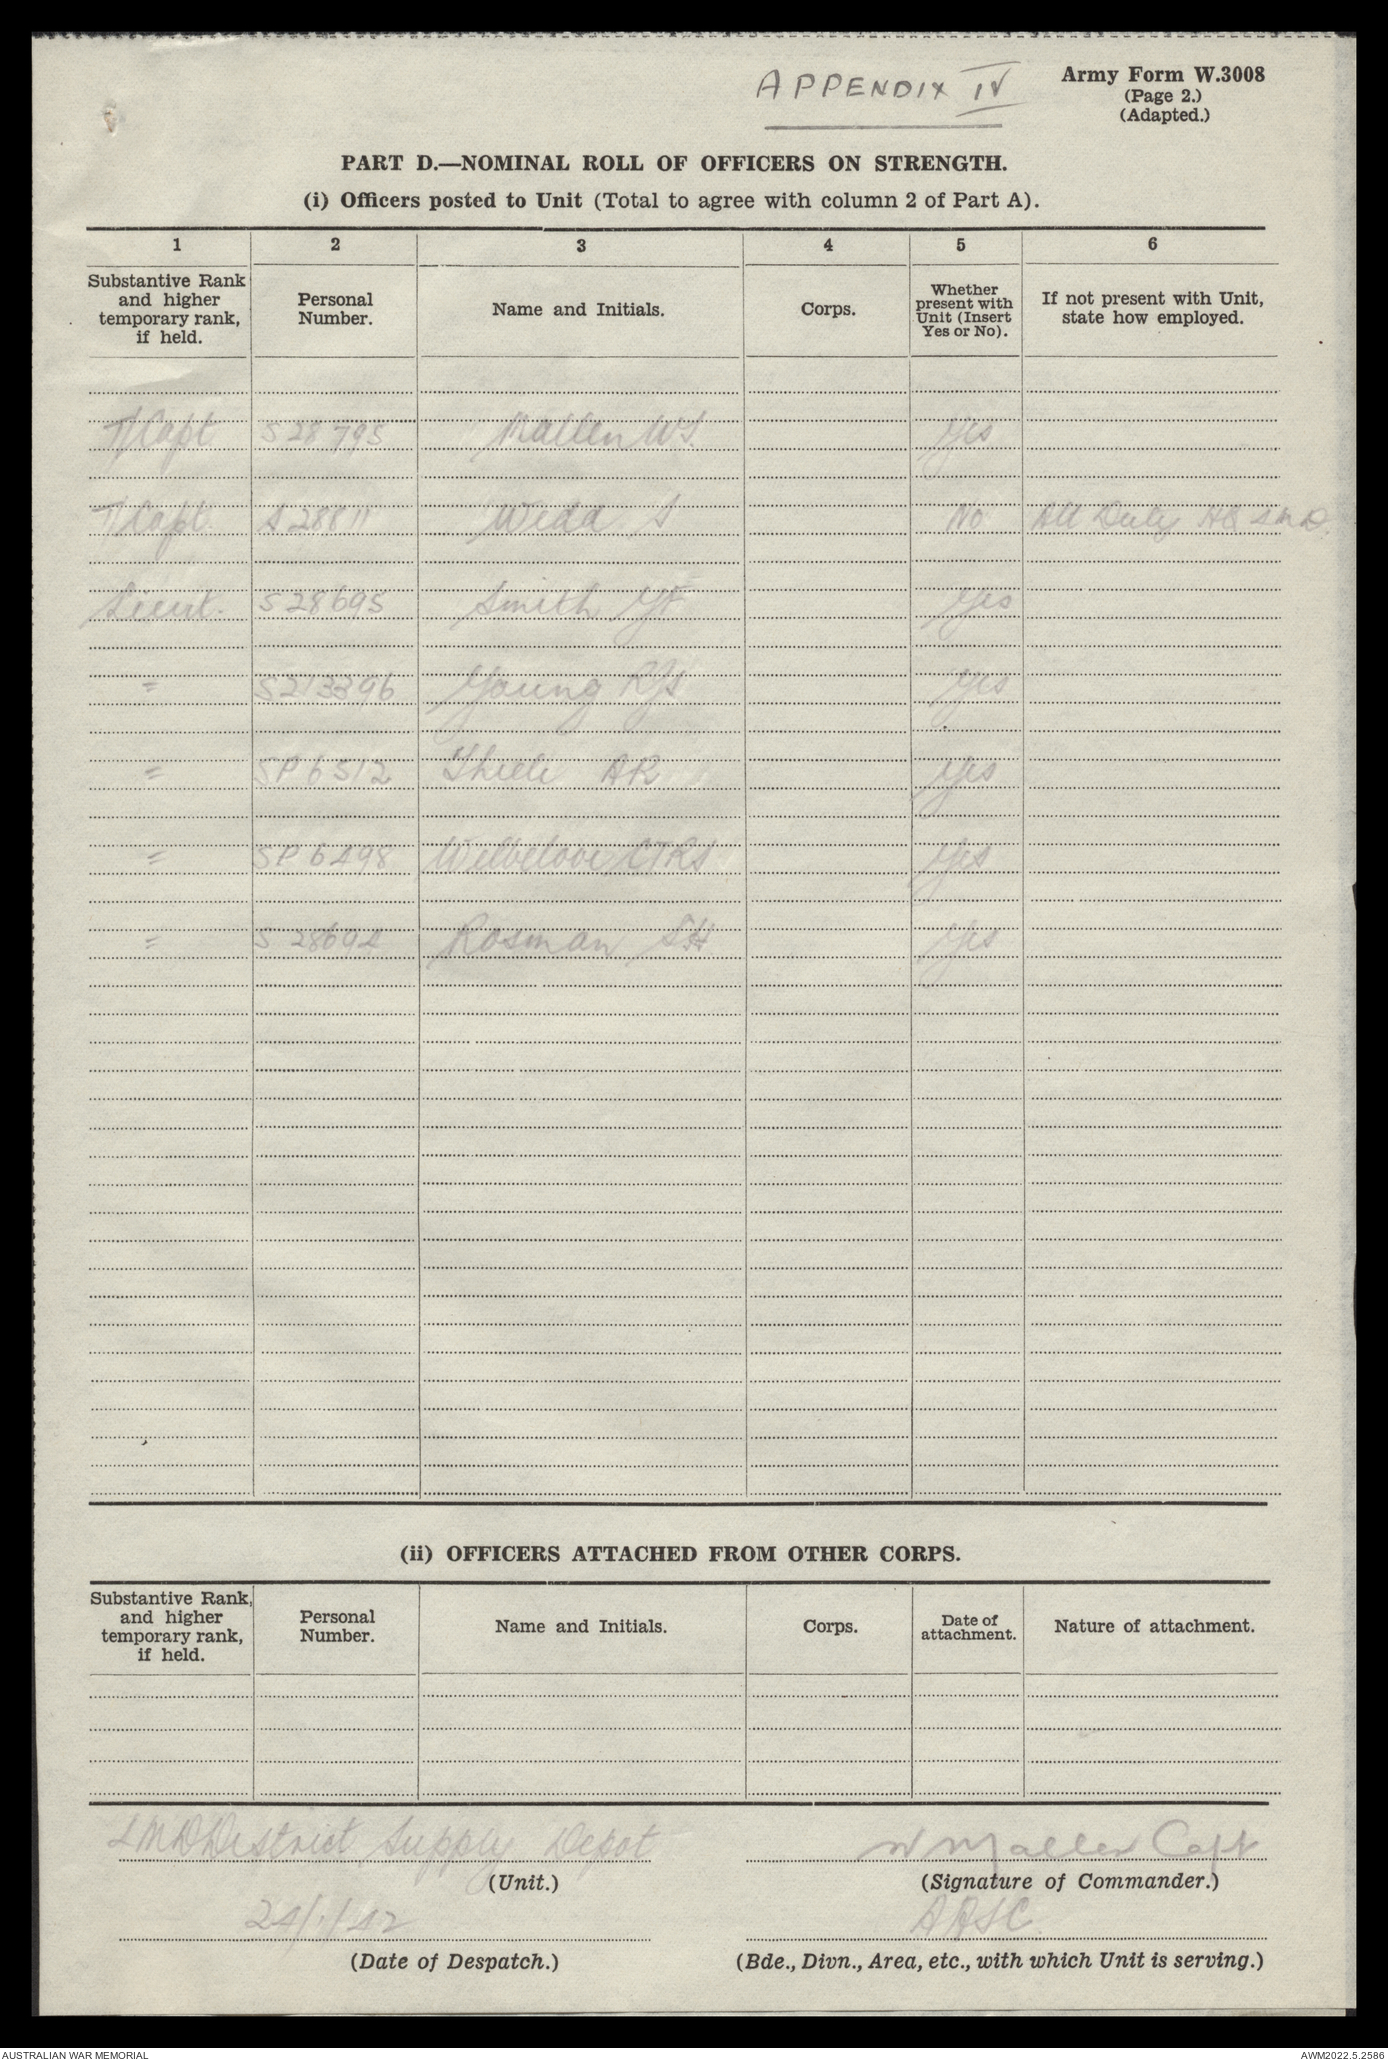 APPENDIX IV
Army Form W.3008
(Page 2.)
(Adapted.)
PART D.—NOMINAL ROLL OF OFFICERS ON STRENGTH.
(i) Officers posted to Unit (Total to agree with column 2 of Part A).
1 2 3 4 5 6
Substantive Rank and higher temporary rank, if held.
Personal Number.
Name and Initials.
Corps.
Whether present with Unit (Insert Yes or No).
If not present with Unit, state how employed.
T/Capt S28795 Mallen W Yes
T/Capt. S28811 Wedd S No Att Duty HQ 4 M D.
Lieut. S28695 Smith Yes
" S213396 Young Yes
" SP6512 Thiele AR Yes
" SP6498 Welbelove CTRS Yes
" S28694 Rosman Yes
(ii) OFFICERS ATTACHED FROM OTHER CORPS.
Substantive Rank, and higher temporary rank, if held.
Personal Number.
Name and Initials.
Corps.
Date of attachment.
Nature of attachment.
4MD District Supply Depot
W Mallen Capt
(Unit.)
(Signature of Commander.)
24/1/42
AASC
(Date of Despatch.)
(Bde., Divn., Area, etc., with which Unit is serving.)
AUSTRALIAN WAR MEMORIAL
AWM2022.5.2586